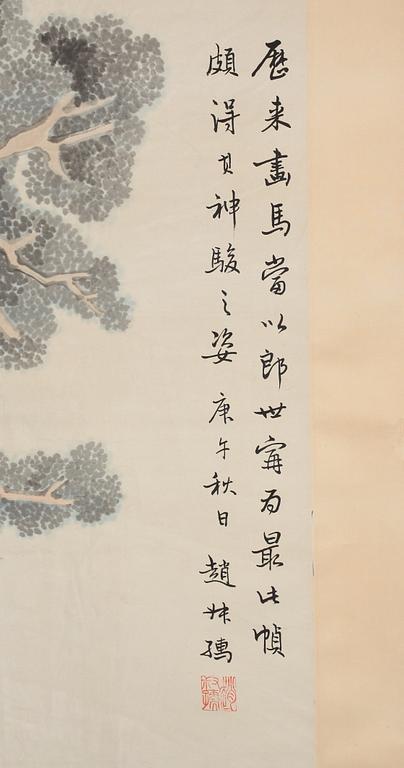 歷来畫馬當以郎世甯為最此幀
頗得其神駿之姿 庚午秋日 趙叔孺